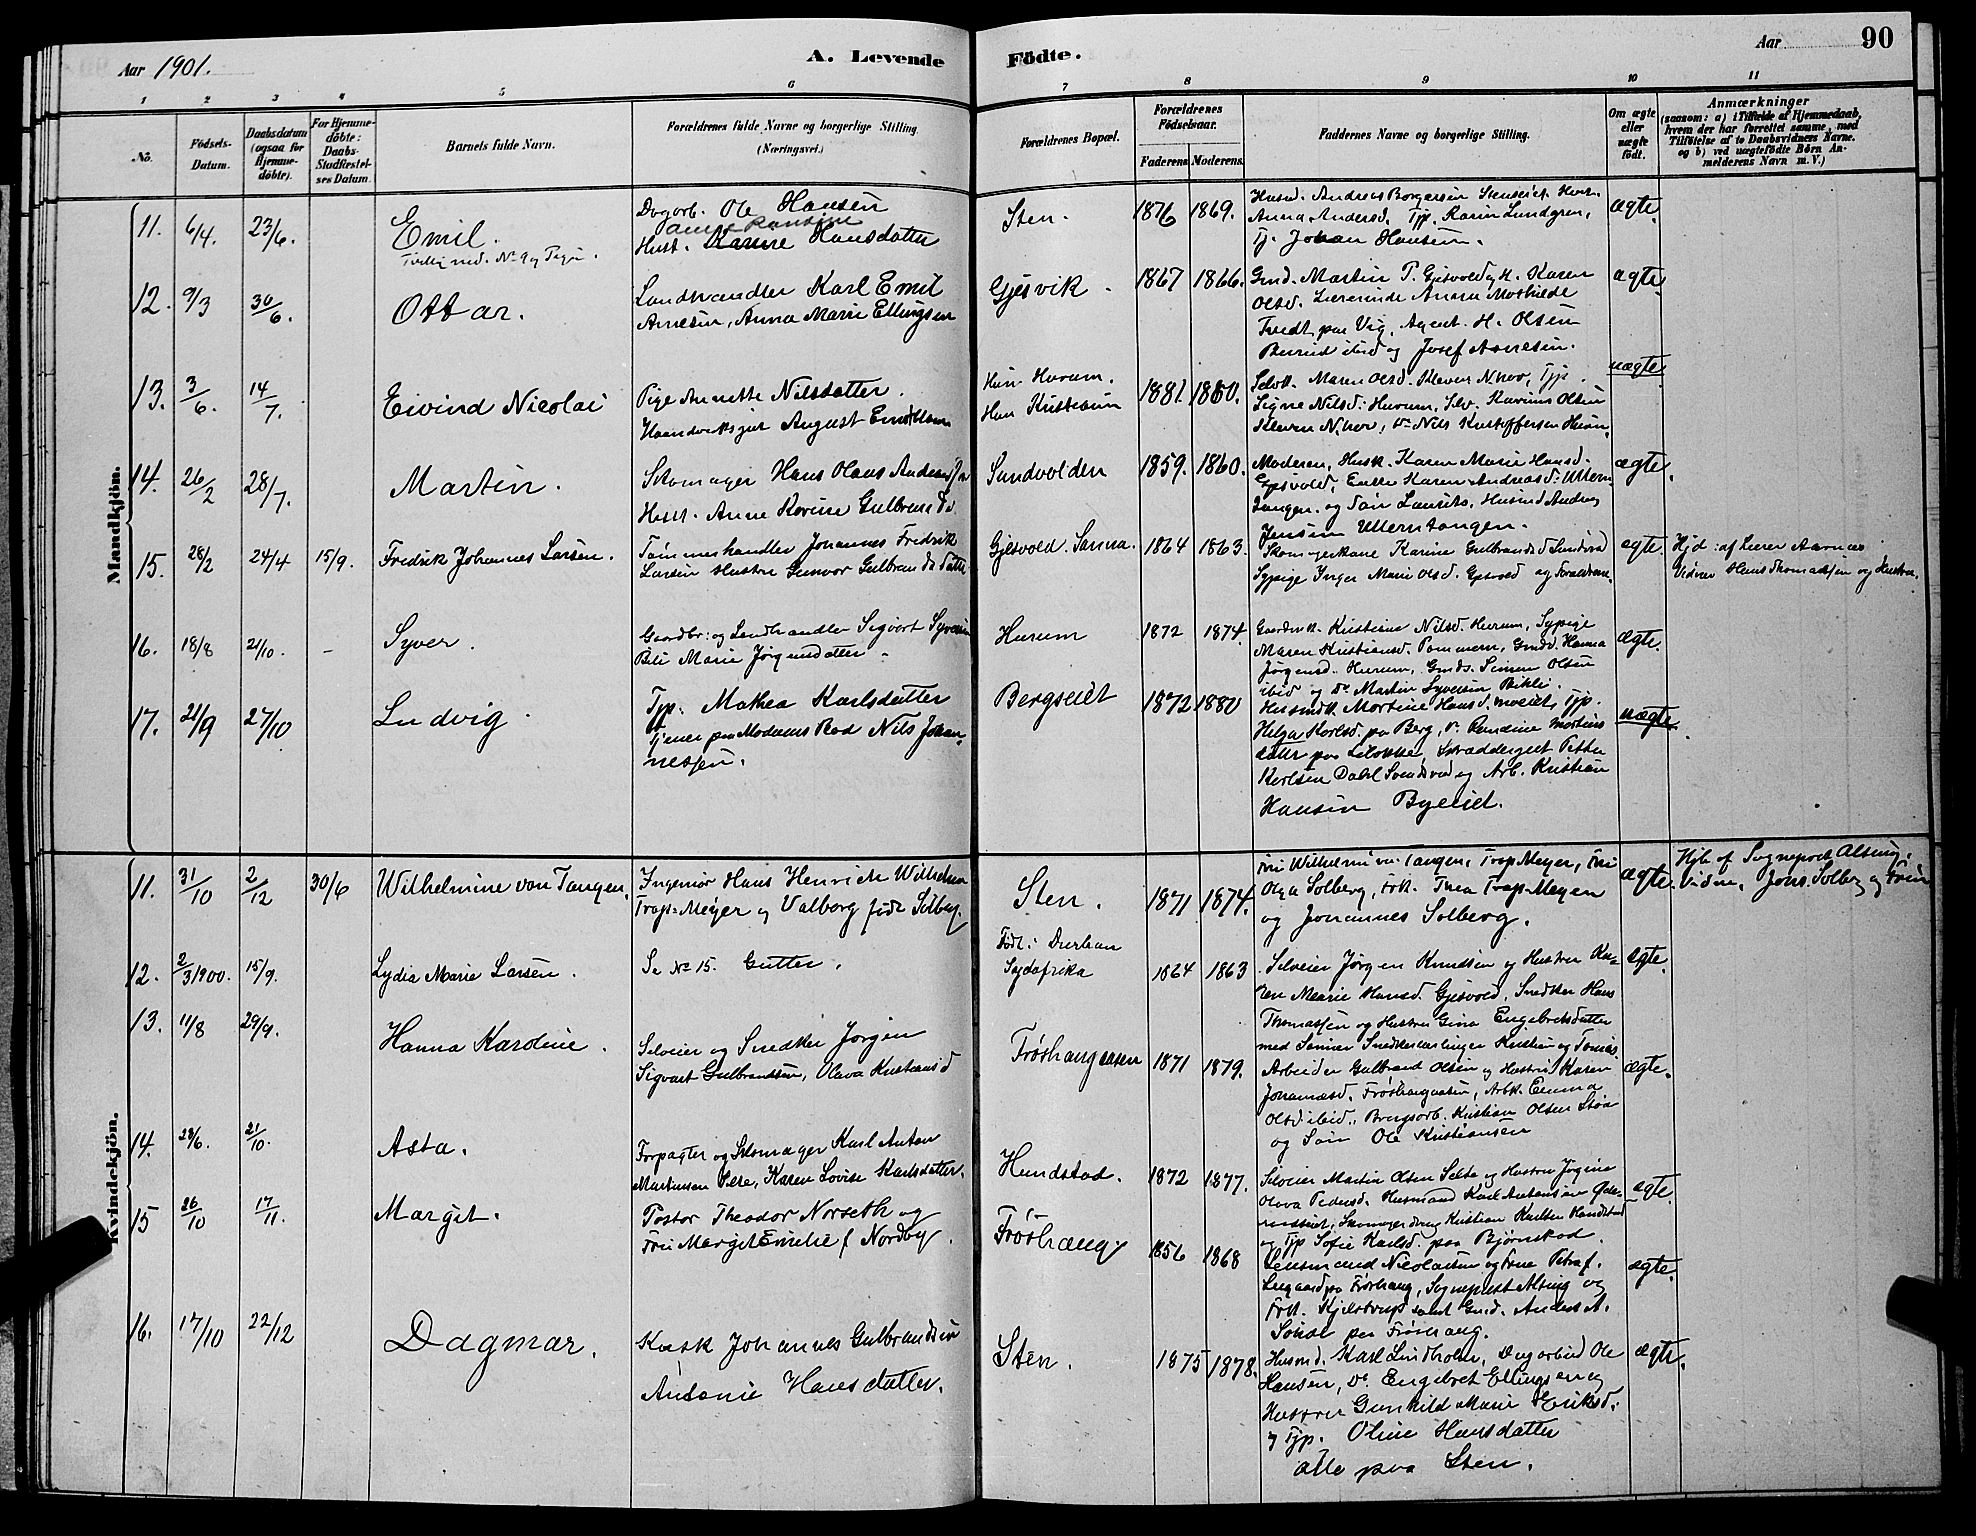 Aar 1901.
A. Levende Födte.
Aar 90
1 2 3 4 5 6 7 8 9 10 11
No.
Födsels-Datum.
Daabsdatum (ogsaa for Hjemme-döbte).
For Hjemme-döbte: Daabs-Stadfæstel-ses Datum.
Barnets fulde Navn.
Forældrenes fulde Navne og borgerlige Stilling.
(Næringsvei.)
Forældrenes Bopæl.
Forældrenes Födselsaar.
Faderens Moderens.
Faddernes Navne og borgerlige Stilling.
Om ægte eller uægte födt.
Anmærkninger
(saasom: a) i Tilfælde af Hjemmedaab, hvem der har forrettet samme, med Tilföielse af to Daabsvidners Navne. og b) ved uægtefödte Börn An-melderens Navn m. V.)
Mandkjön.
11. 6/4. 23/6. Emil.
Tvilling med No 9 og Pige.
Dagarb. Ole Hansen
Hust. Hansdatter
Sten. 1876 1869.
Husmd. Andreas Borgersen Hust.
Anna Andersd. Tjp. Karen Lundgren,
Tj. Johan Hansen.
ægte.
12. 9/3 30/6. Ottar.
Landhandler Karl Emil
Arnesen, Anna Marie Ellingsen
Gjesvik. 1867 1866.
Gmd. Martin P. Gjesvold og H. Karen
Olsd. Lærerinde Anna Mathilde
Tvedt paa Vig, Agent H. Olsen
ibid og Josef Arnesen.
ægte
13. 3/6. 14/7. Eivind Nicolai
Pige Annette Nilsdatter.
August
Hun Hurum.
Han Kristiania
1881 1860.
Maren Olsd. Tjp.
Signe Nilsd. Hurum, Karinus Olsen
Nils Kristoffersen
uægte
14. 26/2 28/7. Martin.
Skomager Hans Olaus
Hust. Anne Karine Gulbrandsd.
Sundvolden 1859. 1860.
Moderen, Husk. Karen Marie Hansd.
Gjesvold, Enke Karen Andreasd. Ullern
tangen og Søn Laurits, Husmd Andreas
Jensen Ullerntangen.
ægte.
15. 28/2 24/4 15/9. Fredrik Johannes Larsen.
Tømmerhandler Johannes Fredrik
Larsen Hustru Gunvor Gulbrandsdatter
Gjesvold. 1864 1863.
Skomagerkone Karine Gulbrandsd Sundvd
Sypige Inger Marie Olsd. Gjesvold og Forældrene
ægte.
Hjd. af Lærer Aarnæs
Vidner Hans Thomassen og Hustru.
16. 18/8 21/10. - Syver.
Gaardbr. og Landhandler Sigvart Syversen
Marie Jørgensdatter.
Hurum 1872 1874.
Gaardmk. Kristine Nilsd. Hurum, Sypige
Maren Kristiansd. Pommern, Gmdd. Hanna
Jørgensd. Hurum, Gmds. Simen Olsen
ibid og Do Martin Syversen Bikli.
ægte.
17. 21/9 27/10 Ludvig.
Tjp. Mathea Karlsdatter
Tjener paa Moderns Bad Nils Johan-
nessen.
Bergseiet 1872 1880
Husmdk. Martine Hansd. Moeiet, Tjp.
Helga Karlsd. paa Berg, Do Randine Martins
datter paa Skræddergut Petter
Karlsen Dahl Sundvd og Arb. Kristian
Hansen Byeiet.
uægte.
Kvindekjön.
11. 31/10 2/12 30/6 Wilhelmine von Tangen
Ingeniør Hans Henrich Wilhelm
Trap-Meyer og Valborg født Solberg.
Sten. 1871 1874.
Fru Wilhelmine von Tangen, Trap Meyer, Fru
Olga Solberg, Frk. Thea Trap-Meyer
og Johannes Solberg.
ægte.
Hjb af Sogneprest Alsing.
Vidner, Johs. Solberg og Frue
12. 2/3 1900. 15/9. Lydia Marie Larsen.
Se No 15. Gutter.
Født: Durban
Sydafrika
1864 1863
Selveier Jørgen Knudsen og Hustru Ka-
ren Marie Hansd. Gjesvold, Snedker Hans
Thomassen og Hustru Gina Engebretsdatter
med Sønner Snedkerlærlinger Kristian og Tomas.
ægte.
13. 11/8 29/9. Hanna Karoline.
Selveier og Snedker Jørgen
Sigvart Gulbrandsen, Olava Kristiansd
Frøshaugaasen 1871 1879.
Arbeider Gulbrand Olsen og Hustru Karen
Johannesd. Frøshaugaasen, Arbk. Emma
Olsd ibid., Brugsarb. Kristian Olsen Støa
og Søn Ole Kristiansen
ægte.
14. 23/6. 21/10. Asta.
Forpagter og Skomager Karl Anton
Martinsen Karen Lovise Karlsdatter.
Hundstad. 1872 1877.
Selveier Martin Olsen Selte og Hustru Jøgine
Olava Pedersd. Husmand Karl Antonsen
Skomagerdreng Kristian Karlsen Hundstad
og Tjp Sofie Karlsd. paa Bjørnstad.
ægte.
15 26/10 17/11. Margit.
Pastor Theodor Norseth og
Fru Margit Emelie f Nordby.
Frøshaug 1856 1868
Lensmand Nicolaisen og Frue Petra f.
paa Frøshaug, Sogneprest Alsing og
Frk. Kjelstrup samt Gmd. Anders A.
paa Frøshaug.
ægte.
16. 17/10 22/12 Dagmar.
Kusk Johannes Gulbrandsen
Antonie Hansdatter.
Sten. 1875 1878.
Husmd. Karl Lindholm, Dagarbeid Ole
Hansen, Do Engebret Ellingsen og
Hustru Gunhild Marie Eriksd.
og Tjp. Oline Hansdatter
alle paa Sten.
ægte.